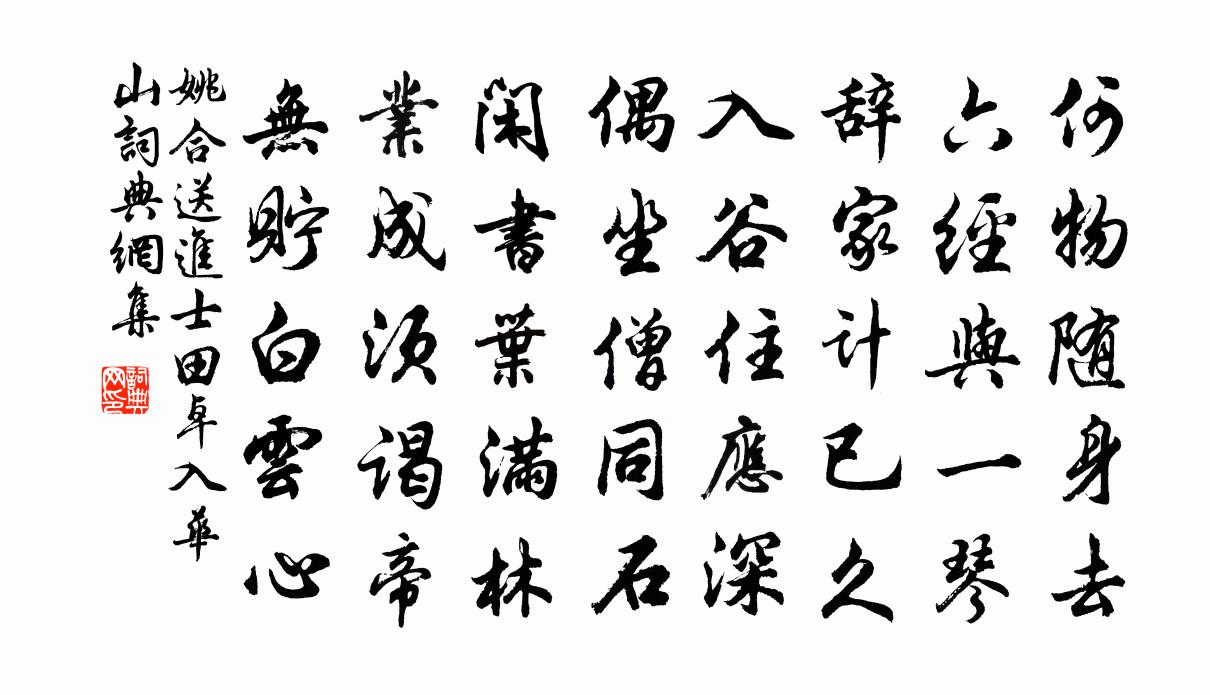 何物随身去
六經與一琴
辞家計已久
入谷住應深
偶坐僧同石
闲書葉滿林
業成须谒帝
無貯白雲心
姚合送進士田卓入華
山詞典網集
詞典
网印